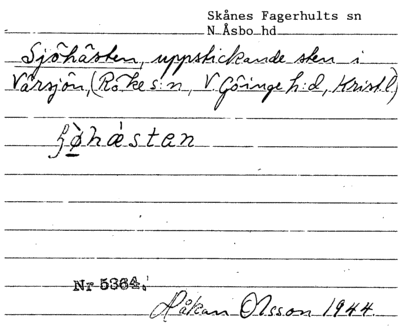 Skånes Fagerhults sn
N Åsbo hd
Sjöhästen, uppstickande sten i
Vårsjön, (Röke s:n, V. Göinge h:d, Krist.l.)
hǽstan
Nr 5364.
Håkan Olsson 1944.